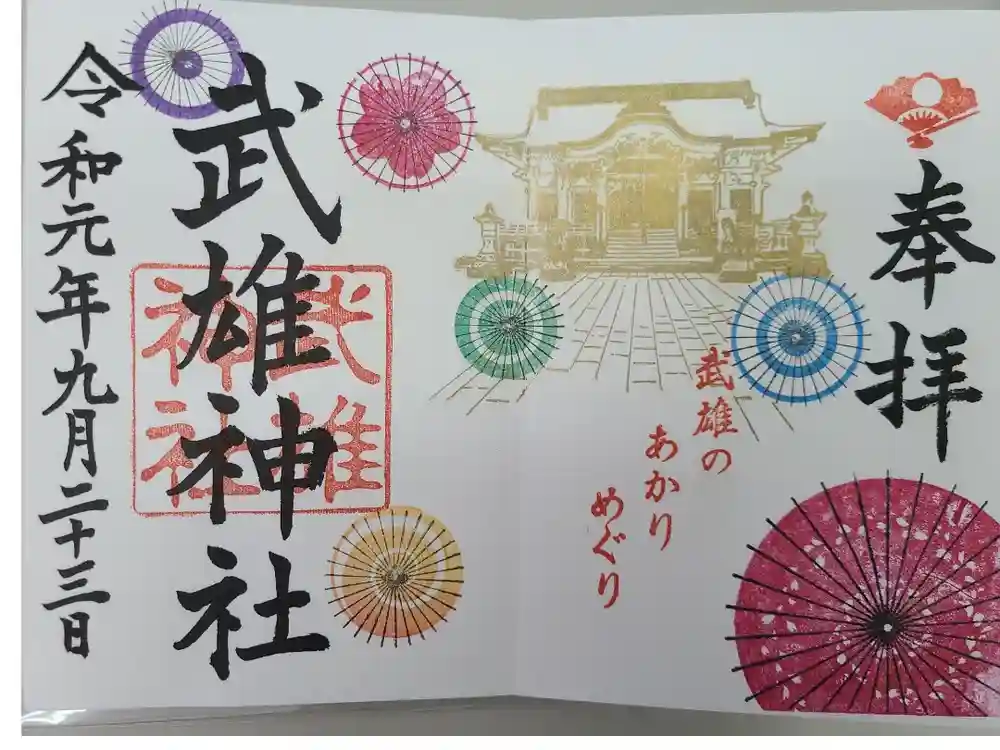 奉拝
武雄の
あかり
めぐり
武雄神社
武雄
神社
令和元年九月二十三日